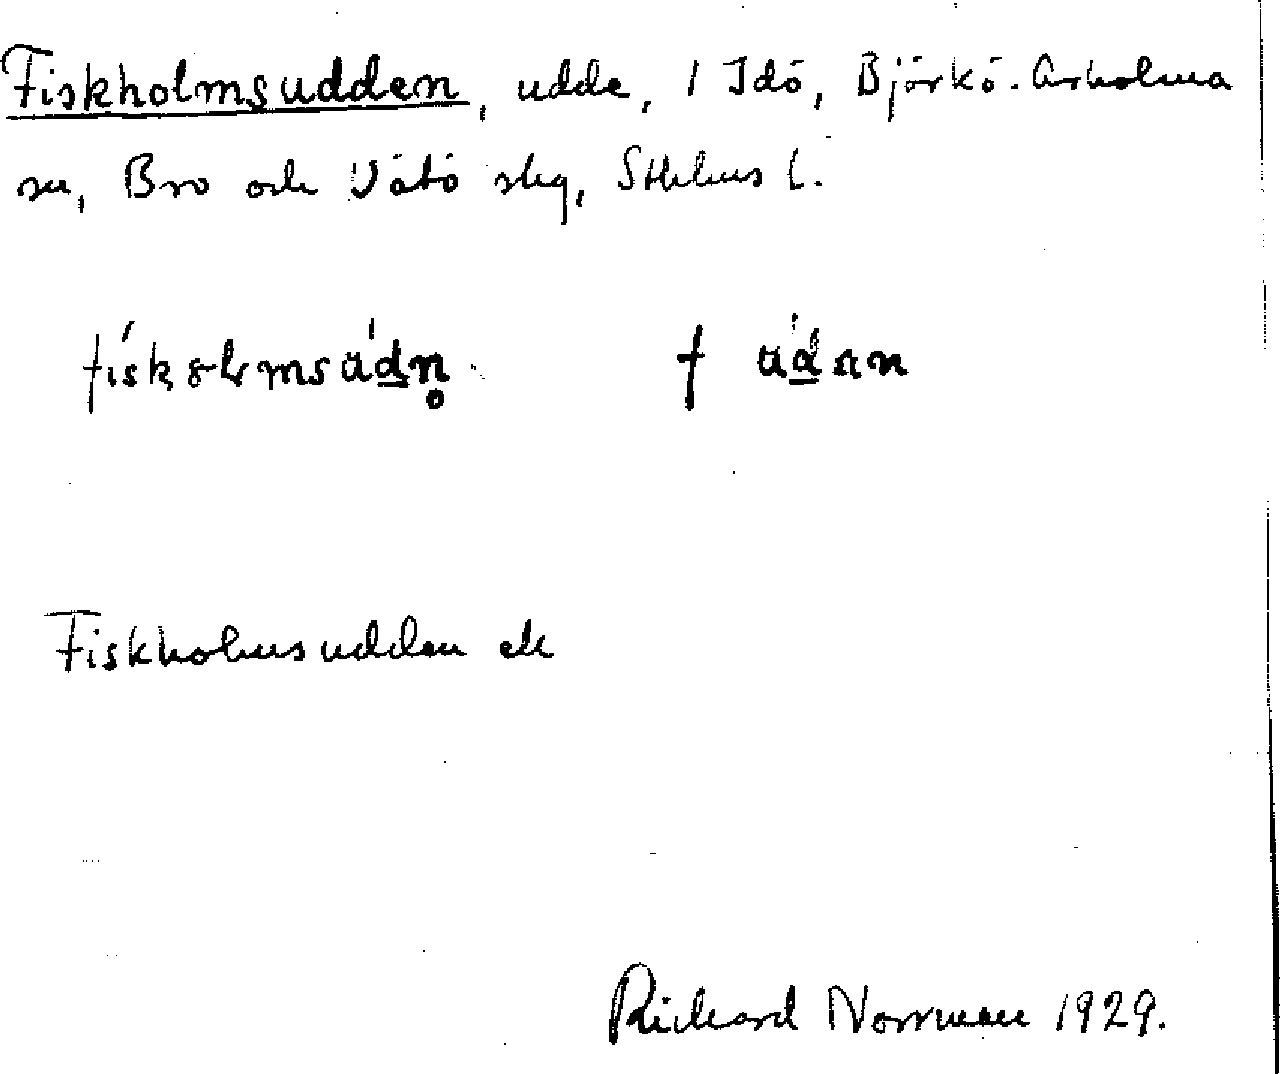 Fiskholmsudden, udde, 1 Idö, Björkö-Arholma
sn, Bro och Vätö skg, Sthlms l.
Fiskholmsudden ek
Richard Norrman 1929.